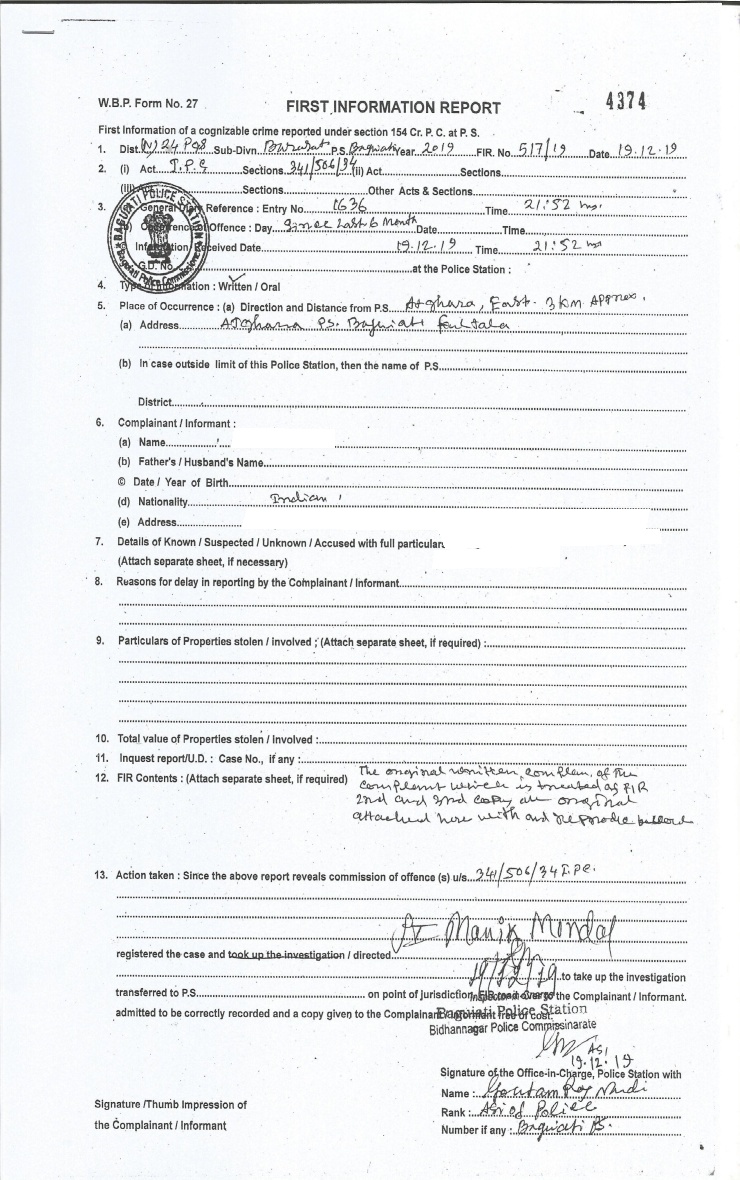 W.B.P. Form No. 27
FIRST INFORMATION REPORT
4374
First Information of a cognizable crime reported under section 154 Cr. P. C. at P. S.
1. Dist. (N) 24 Pgs Sub-Divn. Barasat P.S. Baguiati Year 2019 FIR. No. 517/19 Date 19.12.19
2. (i) Act I.P.C Sections 341/506/34 (ii) Act Sections
(iii) Sections Other Acts & Sections
3. General Diary Reference : Entry No. 1636 Time 21:52 hrs.
Occurrence of Offence : Day Since Last 6 Month Date Time
Information Received Date 19.12.19 Time 21:52 hrs
G.D. No. at the Police Station :
BAGUIATI POLICE STATION
4. Type of Information : Written / Oral
5. Place of Occurrence : (a) Direction and Distance from P.S. Atghara, East. 3 Km Approx.
(a) Address Atghara P.S. Baguiati
(b) In case outside limit of this Police Station, then the name of P.S.
District
6. Complainant / Informant :
(a) Name
(b) Father's / Husband's Name
© Date / Year of Birth
(d) Nationality Indian
(e) Address
7. Details of Known / Suspected / Unknown / Accused with full particular
(Attach separate sheet, if necessary)
8. Reasons for delay in reporting by the Complainant / Informant
9. Particulars of Properties stolen / involved ; (Attach separate sheet, if required) :
10. Total value of Properties stolen / Involved :
11. Inquest report/U.D. : Case No., if any :
12. FIR Contents : (Attach separate sheet, if required) The original written complen. of the
complent which is treated as FIR
2nd and 3nd copy are original
attached here with and
13. Action taken : Since the above report reveals commission of offence (s) u/s. 341/506/34 I.P.C.
registered the case and took up the investigation / directed SI Manik Mondal
19/12/19 to take up the investigation
transferred to P.S. on point of jurisdiction. FIR read over to the Complainant / Informant.
admitted to be correctly recorded and a copy given to the Complainant / Informant free of cost.
Inspector in Charge
Baguiati Police Station
Bidhannagar Police Commissinarate
ASI
19.12.19
Signature of the Office-in-Charge, Police Station with
Name : Goutam Roy
Rank : ASI of Police
Number if any : Baguiati PS.
Signature /Thumb Impression of
the Complainant / Informant